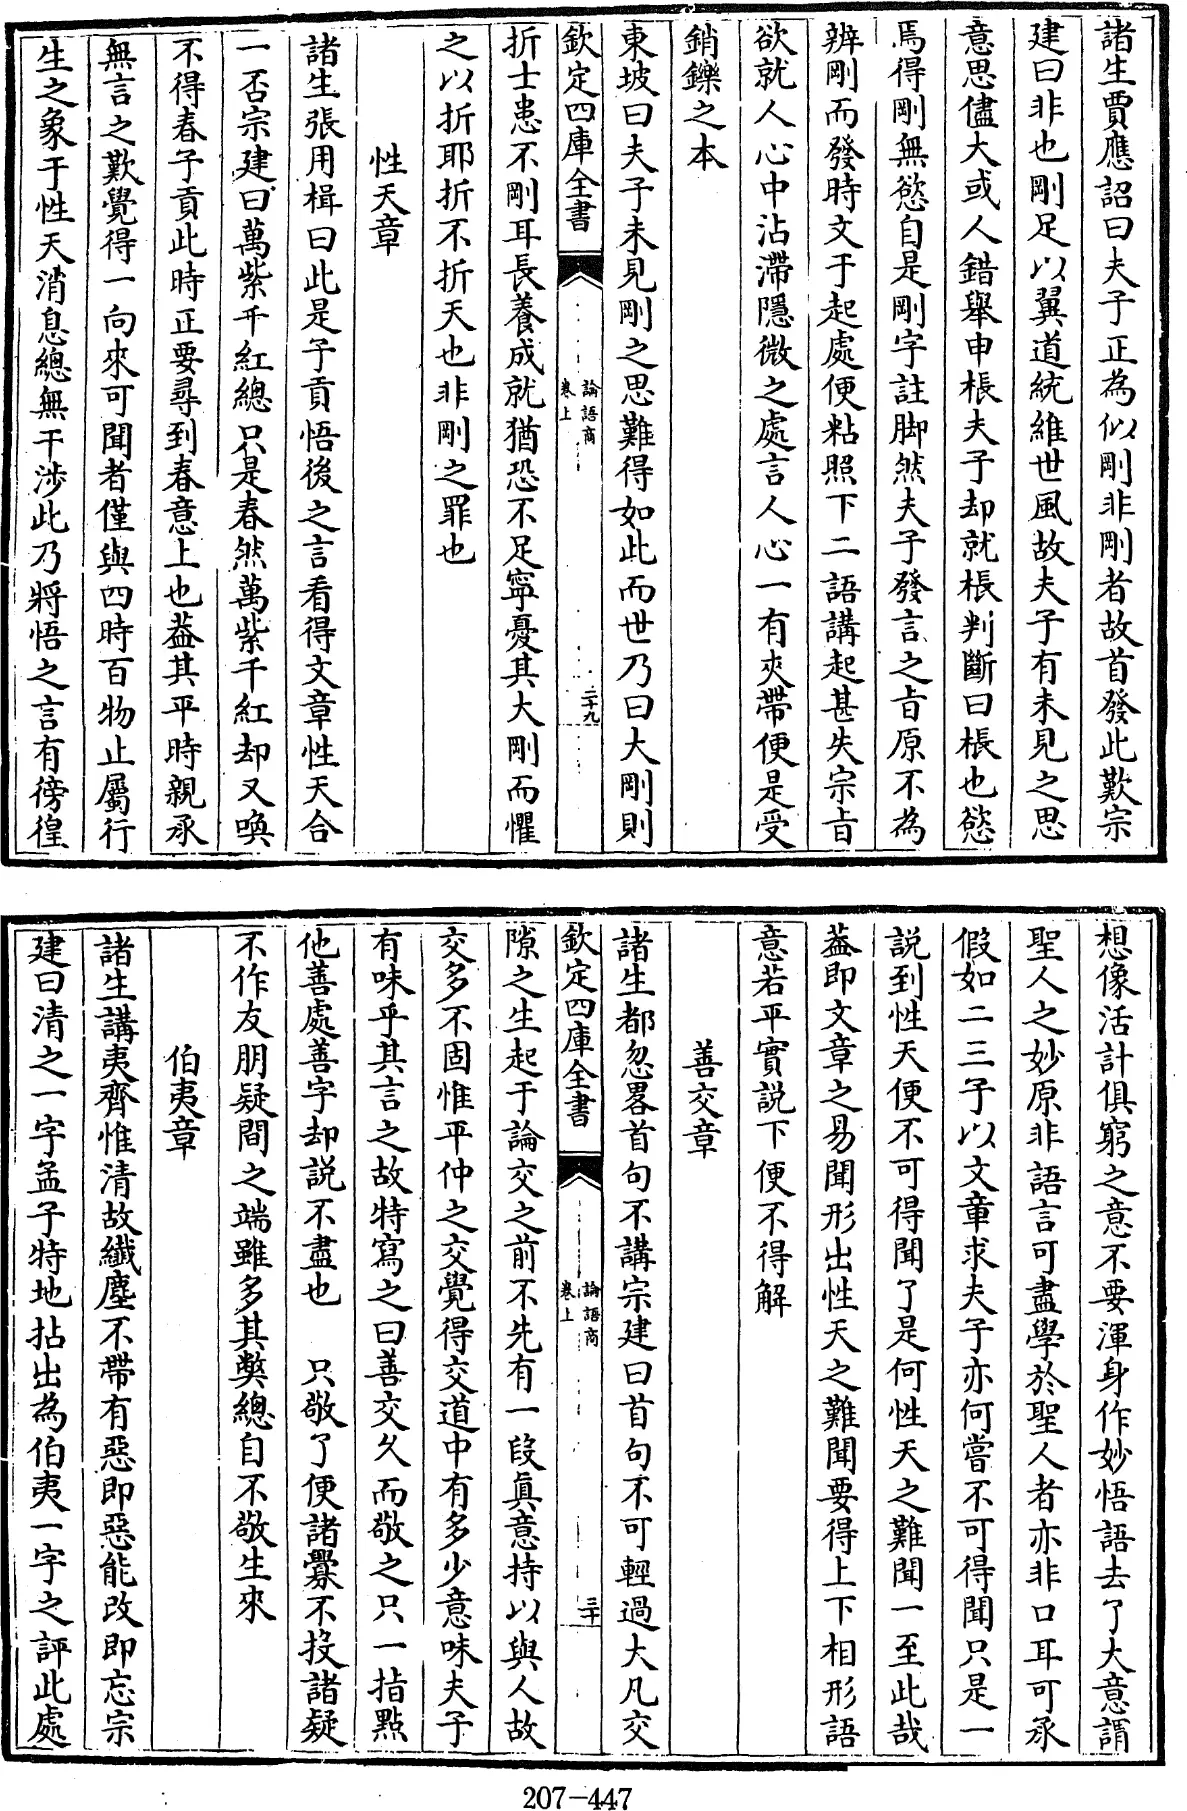 諸生賈應詔曰夫子正為似剛非剛者故首發此歎宗
建曰非也剛足以翼道統維世風故夫子有未見之思
意思儘大或人錯舉申棖夫子却就棖判斷曰棖也慾
焉得剛無慾自是剛字註脚然夫子發言之旨原不為
辨剛而發時文于起處便粘照下二語講起甚失宗旨
欲就人心中沾滯隱微之處言人心一有夾帶便是受
銷鑠之本
東坡曰夫子未見剛之思難得如此而世乃曰大剛則
欽定四庫全書
論語商
卷上
二十九
折士患不剛耳長養成就猶恐不足寧憂其大剛而懼
之以折耶折不折天也非剛之罪也
性天章
諸生張用楫曰此是子貢悟後之言看得文章性天合
一否宗建曰萬紫千紅總只是春然萬紫千紅却又喚
不得春子貢此時正要尋到春意上也葢其平時親承
無言之歎覺得一向來可聞者僅與四時百物止屬行
生之象于性天消息總無干涉此乃將悟之言有徬徨
想像活計俱窮之意不要渾身作妙悟語去了大意謂
聖人之妙原非語言可盡學於聖人者亦非口耳可承
假如二三子以文章求夫子亦何嘗不可得聞只是一
說到性天便不可得聞了是何性天之難聞一至此哉
葢即文章之易聞形出性天之難聞要得上下相形語
意若平實說下便不得解
善交章
諸生都忽畧首句不講宗建曰首句不可輕過大凡交
欽定四庫全書
論語商
卷上
三十
隙之生起于論交之前不先有一段真意持以與人故
交多不固惟平仲之交覺得交道中有多少意味夫子
有味乎其言之故特寫之曰善交久而敬之只一指點
他善處善字却說不盡也　只敬了便諸釁不投諸疑
不作友朋疑間之端雖多其弊總自不敬生來
伯夷章
諸生講夷齊惟清故纖塵不帶有惡即惡能改即忘宗
建曰清之一字孟子特地拈出為伯夷一字之評此處
207-447